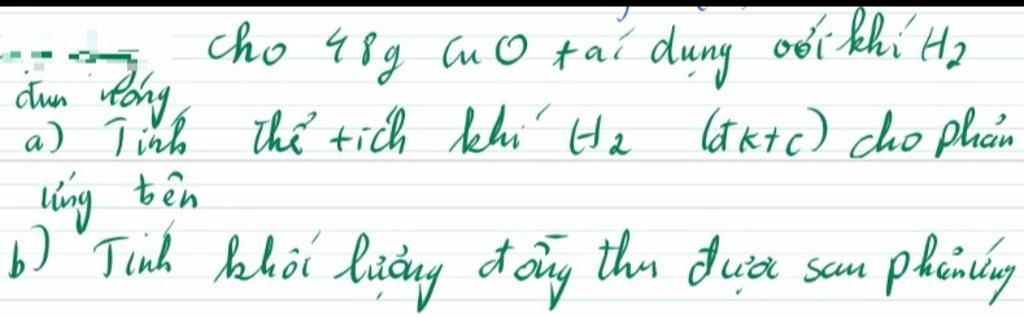 Cho 48g CuO tác dụng với khí H2
đun nóng
a) Tính thể tích khí H2 (đktc) cho phản
ứng trên
b) Tính khối lượng đồng thu được sau phản ứng